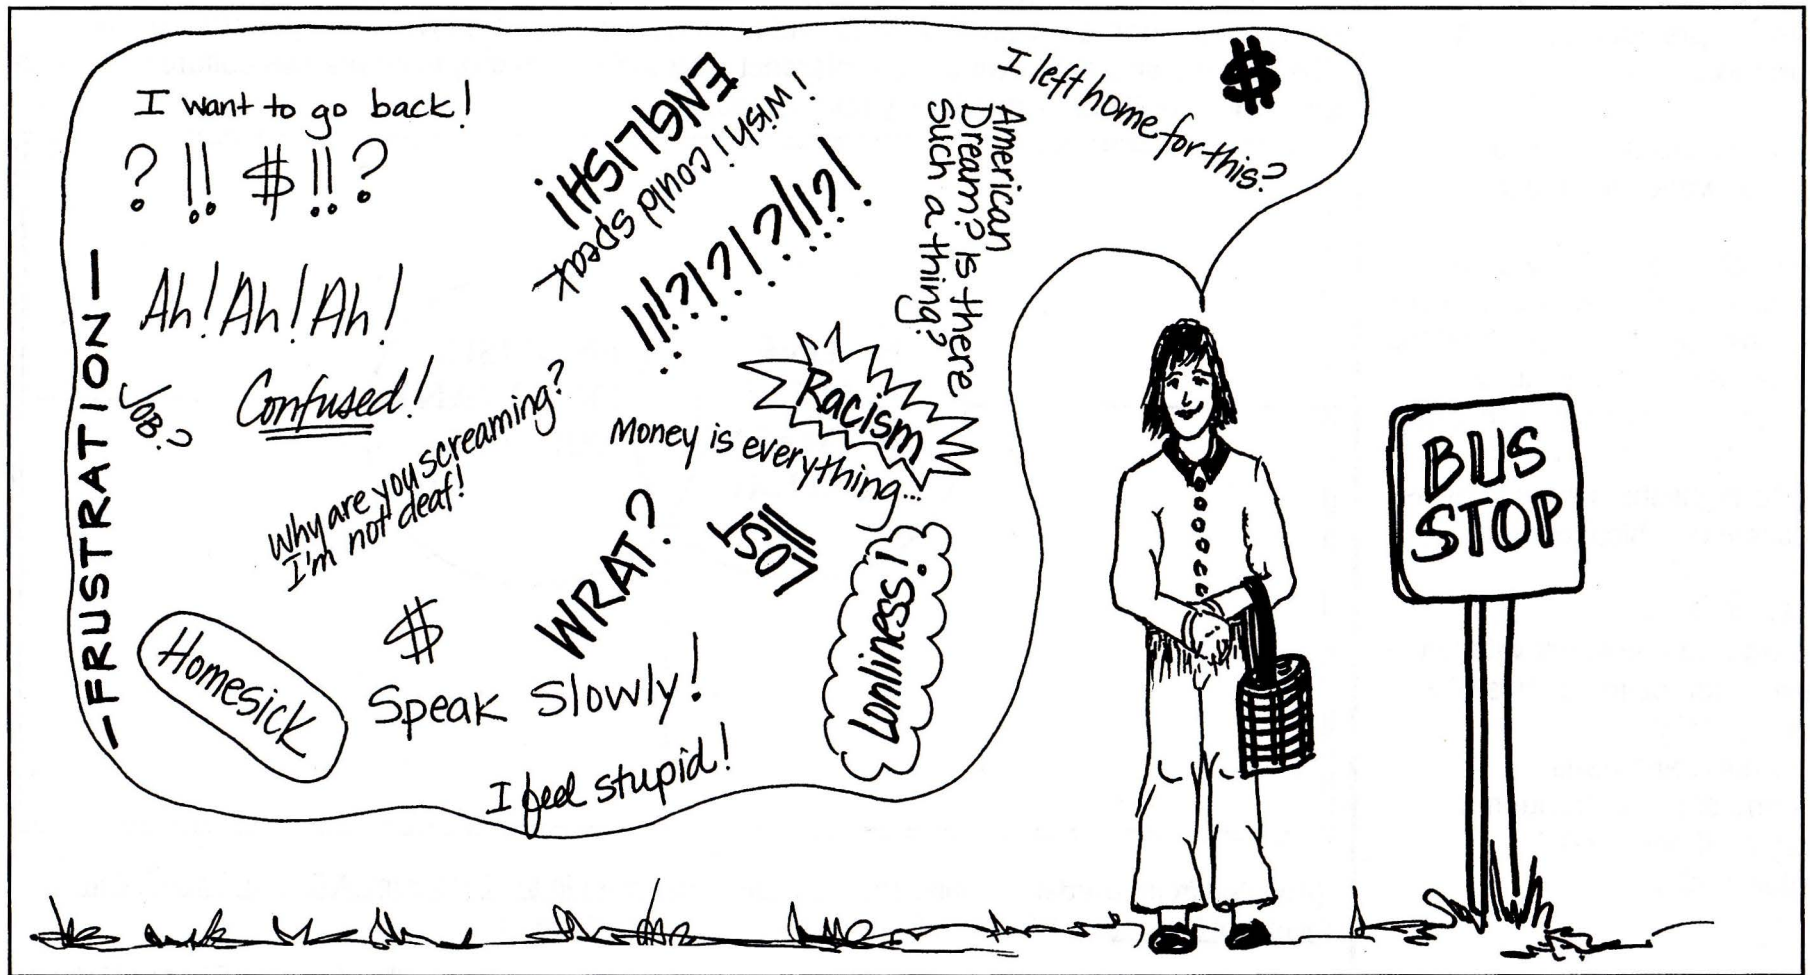 I want to go back!
? !! $ !! ?
Ah! Ah! Ah!
—FRUSTRATION—
JOB?
Confused!
Why are you screaming?
I'm not deaf!
Homesick
$
Speak Slowly!
I feel stupid!
i wish i could speak
ENGLISH!
!!!?!?!?!?!!?!
WRAT?
LOST
Money is everything...
Racism
Lonliness!
American
Dream? Is there
such a thing?
I left home for this?
$
BUS
STOP